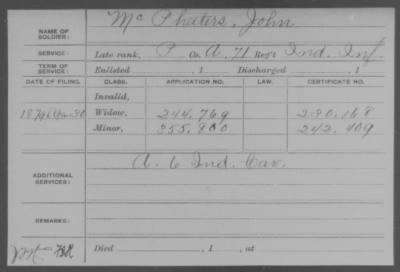 NAME OF SOLDIER: Mc Pheeters, John
SERVICE: Late rank, P Co. A, 71 Reg't Ind. Inf.
TERM OF SERVICE: Enlisted , 1 Discharged , 1
DATE OF FILING. CLASS. APPLICATION NO. LAW. CERTIFICATE NO.
Invalid,
Widow, 244.769 230.168
Minor, 355.800 242.409
ADDITIONAL SERVICES: A. 6 Ind. Cav.
REMARKS:
Died , 1 , at